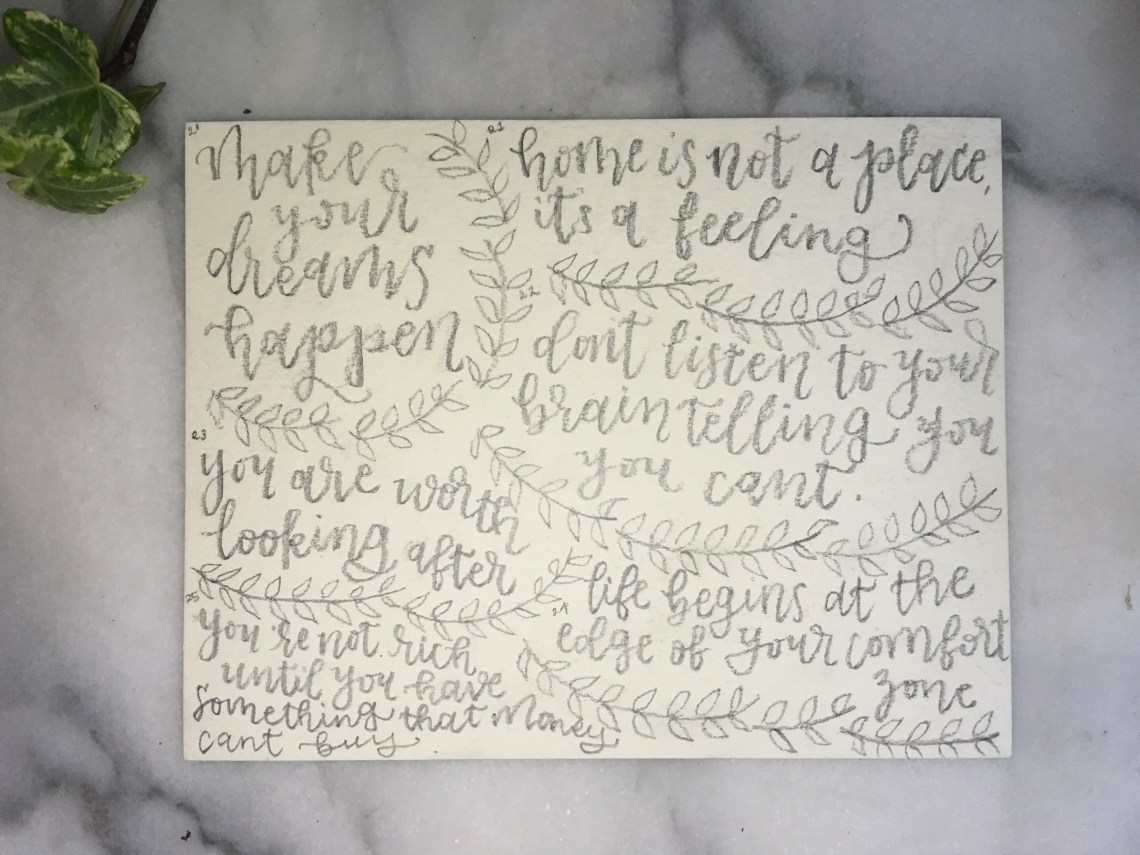 21
make
your
dreams
happen
21
home is not a place,
it's a feeling
22
dont listen to your
brain telling you
you cant.
23
you are worth
looking after
24
life begins at the
edge of your comfort
zone
25
you're not rich
until you have
something that money
cant buy.